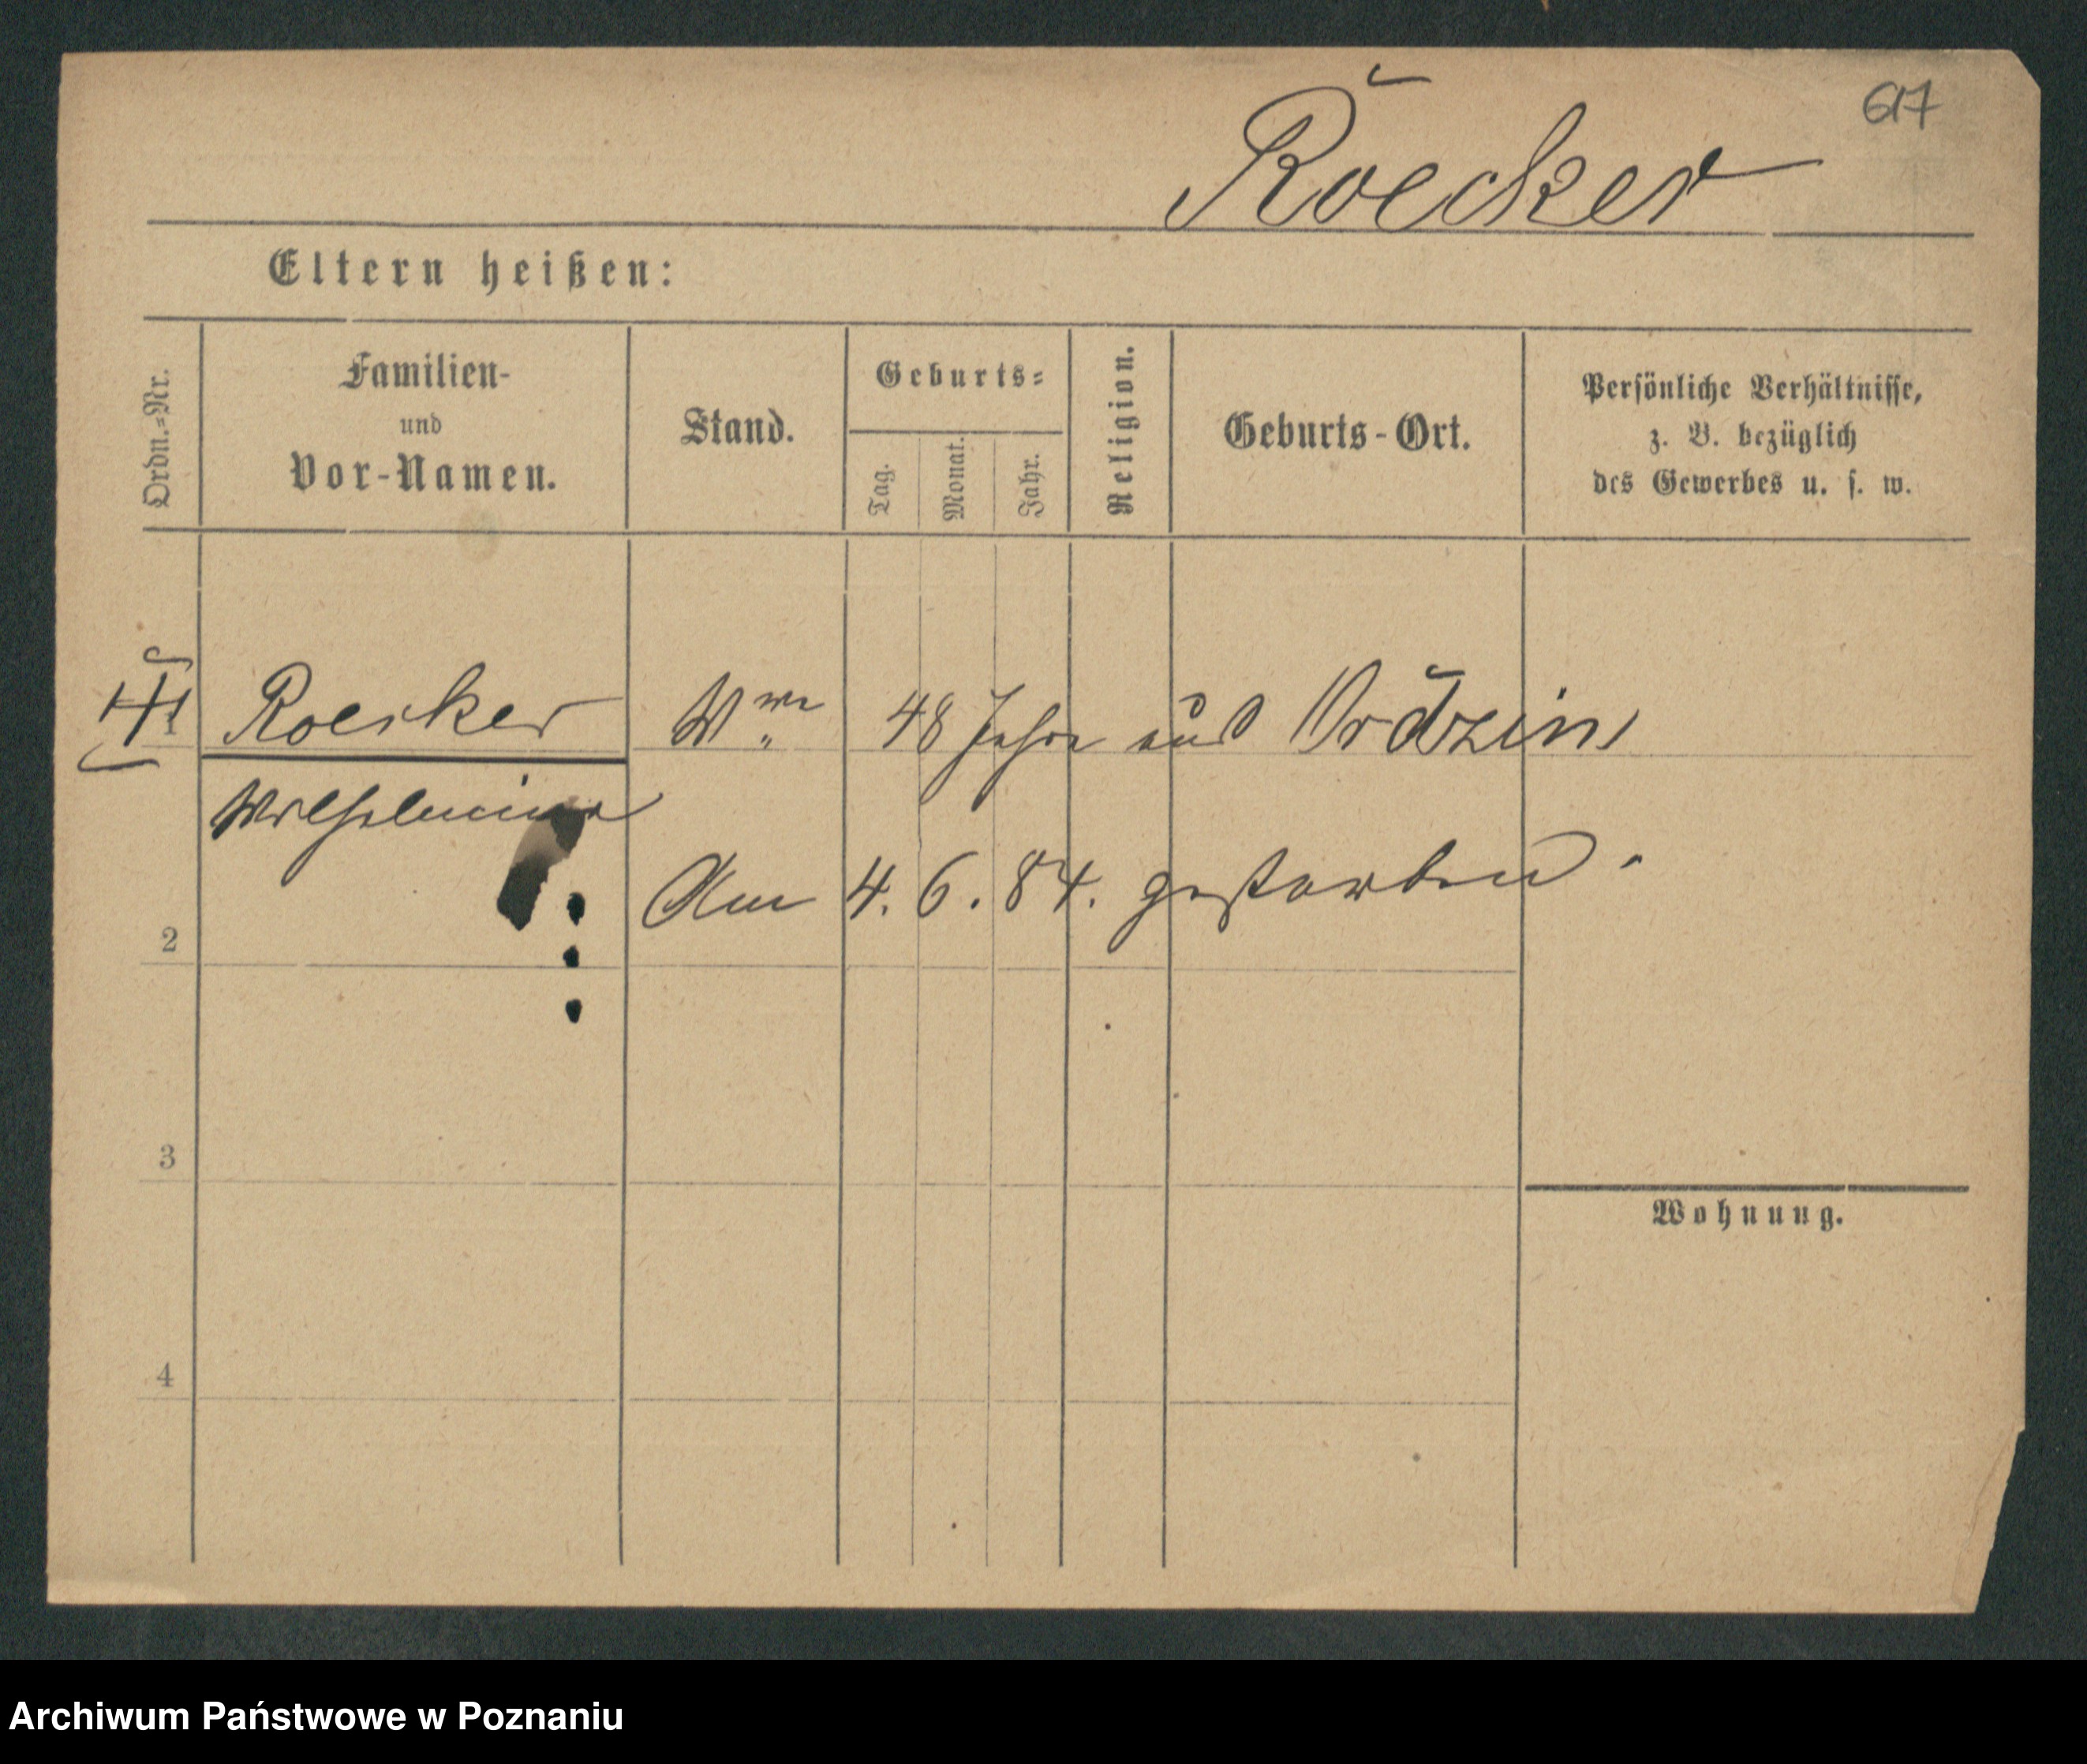 617
Roecker
Eltern heißen:
Ordn.-Nr.
Familien-
und
Vor-Namen.
Stand.
Geburts-
Tag.
Monat.
Jahr.
Religion.
Geburts-Ort.
Persönliche Verhältnisse,
z. B. bezüglich
des Gewerbes u. s. w.
1 Roecker Wwe 48 Jahre aus Ordzin
Wilhelmine
Am 4. 6. 84. gestorben.
2
3
Wohnung.
4
Archiwum Państwowe w Poznaniu